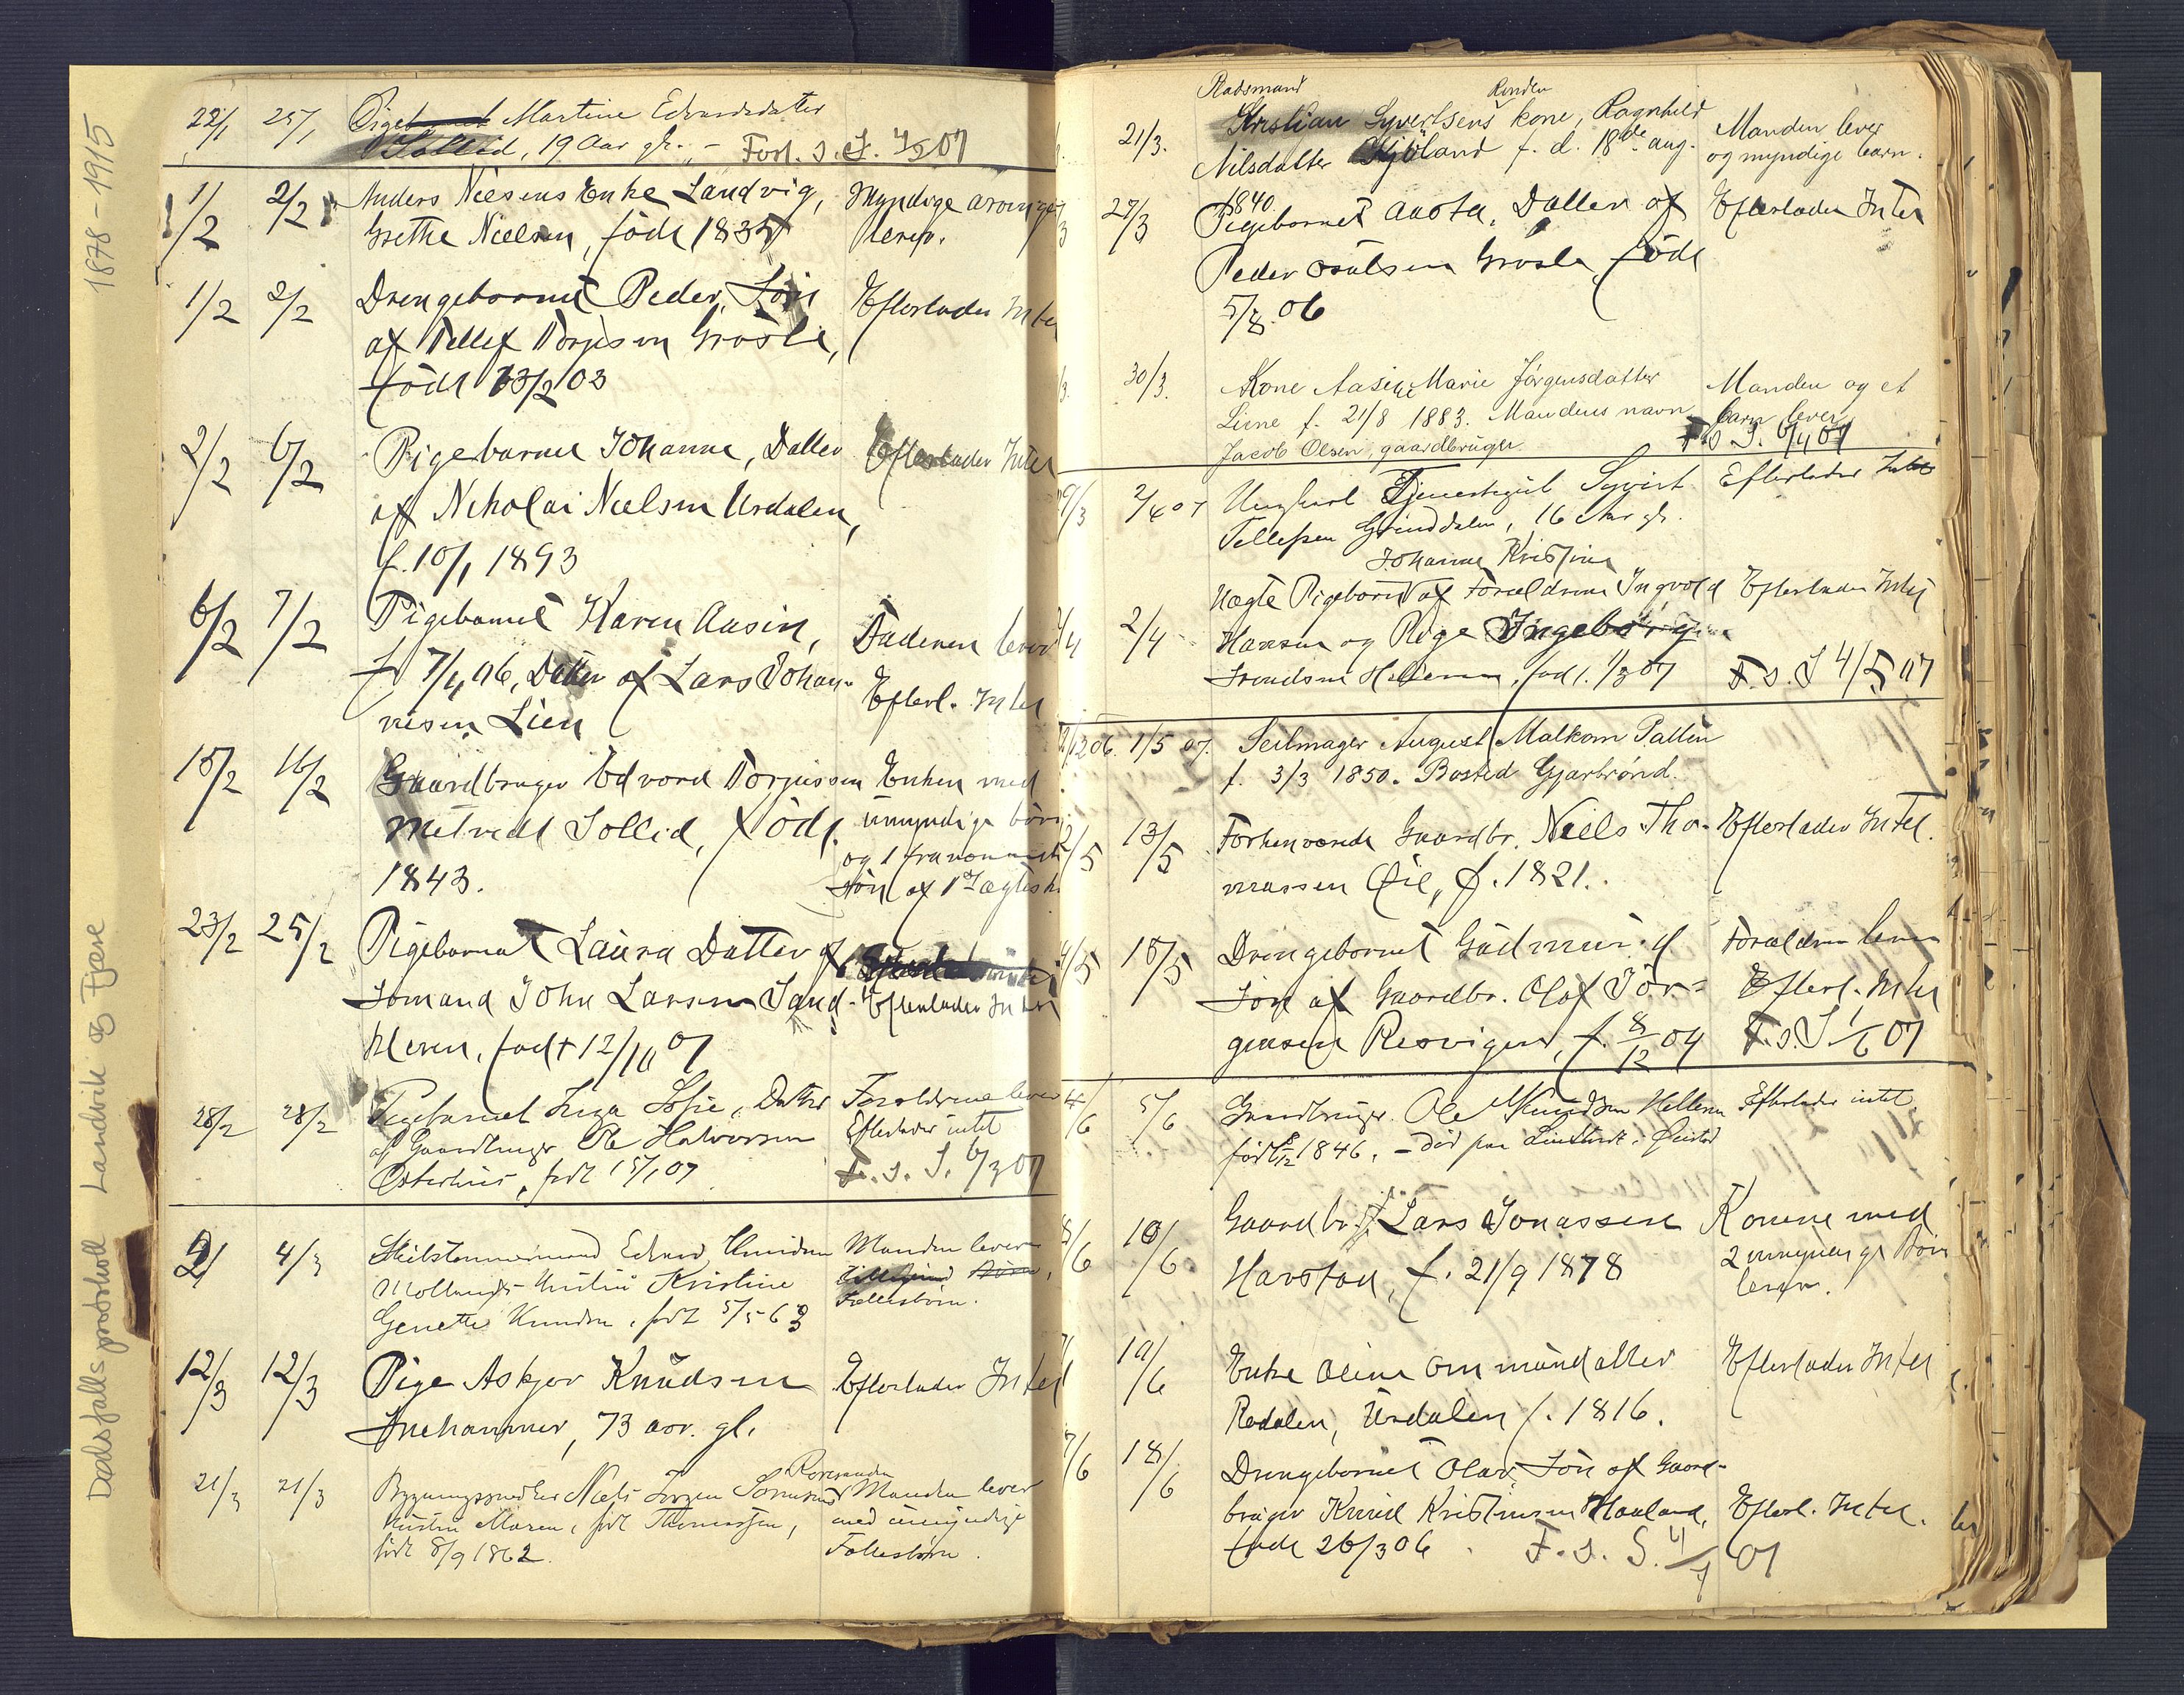 1878-1915
Dødsfallsprotokoll Landvik og Fjære
22/1 25/1 Pigebarnet Martine Edvardsdatter
Sollid, 19 Aar gl. - Forl. s. S. 7/2 07
1/2 2/2 Anders Nielsens Enke Landvig, Myndige arvinger
Grethe Nielsen, født 1835 lever.
1/2 2/2 Drengebarnet Peder, Søn Efterlader Intet
af Tellef Torjusen Grosle,
født 13/2 03
2/2 6/2 Pigebarnet Johanne, Datter Efterlader Intet
af Nikolai Nielsen Urdalen,
f. 10/1 1893
6/2 7/2 Pigebarnet Karen Aasine, Faderen lever
f. 7/4 06, Datter af Lars Johan- Efterl. Intet
nesen Lien
15/2 16/2 Gaardbruger Edvard Torjussen Enken med
Mitvedt Sollid, født umyndige børn
1843. og 1 fraværende
søn af 1ste Ægtesk.
23/2 25/2 Pigebarnet Laura Datter af
Sømand John Larsen Sand- Efterlader Intet
kleven, født 12/10 07
28/2 28/2 Pigebarnet Inga Sofie, Datter Forældrene lever
af Gaardbruger Ole Halvorsen Efterlader intet
Østerhus, født 15/1 07 F. s. S. 6/3 07
2/ 4/3 Skibstømmermand Edvard Knudsen Manden lever
Hustru Kristine
Genette Knudsen, født 5/5 63 Fællesbørn.
12/3 12/3 Pige Askjer Knudsen Efterlader Intet
Inehammer, 73 aar. gl.
21/3 21/3 Bygningssnedker Niels Jørgen Sørensen Roresanden Manden lever
Hustru Maren, født Thomassen, med umyndige
født 8/9 1862. Fællesbørn.
Pladsmand Runden
21/3. Kristian Syvertsens kone, Ragnhild Manden lever
Nilsdatter Kjøland f. d. 18de aug. og myndige barn.
1840.
27/3 Pigebarnet Aasta, Datter af Efterlader Intet
Peder Osulsen Grosle, født
5/8 06
30/3. Kone Aasine Marie Jørgensdatter Manden og et
Lime f. 21/8 1883. Mandens navn barn lever
Jacob Olsen, gaardbruger. F. s. S. 6/4 07
29/3 2/4 07 Ungkarl Tjenestegut Syvert Efterlader Intet
Tellefsen Grinddalen, 16 Aar gl.
Johanne Kristine
2/4 Uægte Pigebarn af Forældrene Ingvald Efterlader Intet
Hansen og Pige Ingeborg
Helleren, født 1/3 07 F. s. S 4/5 07
1/5 07. Seilmager August Malkom Pallin
f. 3/3 1850. Bosted Gjærbrønd.
13/5 Forhenværende Gaardbr. Niels Tho- Efterlader Intet.
massen Øie, f. 1821.
15/5 Drengebarnet Gudmund Forældrene lever
Søn af Gaardbr. Olaf Jør- Efterl. Intet
gensen Resvigen, f. 8/12 04 F. s. S 1/6 07
4/6 5/6 Gaardbruger Ole Knudsen Helleren Efterlader intet
født 1846. - død paa Øiestad
8/6 10/6 Gaardbr. Lars Jonassen Konen med
Harstad, f. 21/9 1878 2 umyndige Børn
lever.
19/6 Enke Oline Ommundatter Efterlader Intet
Rodalen, Urdalen f. 1816.
17/6 18/6 Drengebarnet Olav Søn af Gaard-
bruger Knud Kristensen Haaland, Efterl. Intet.
født 26/3 06 F. s. S. 4/7 07